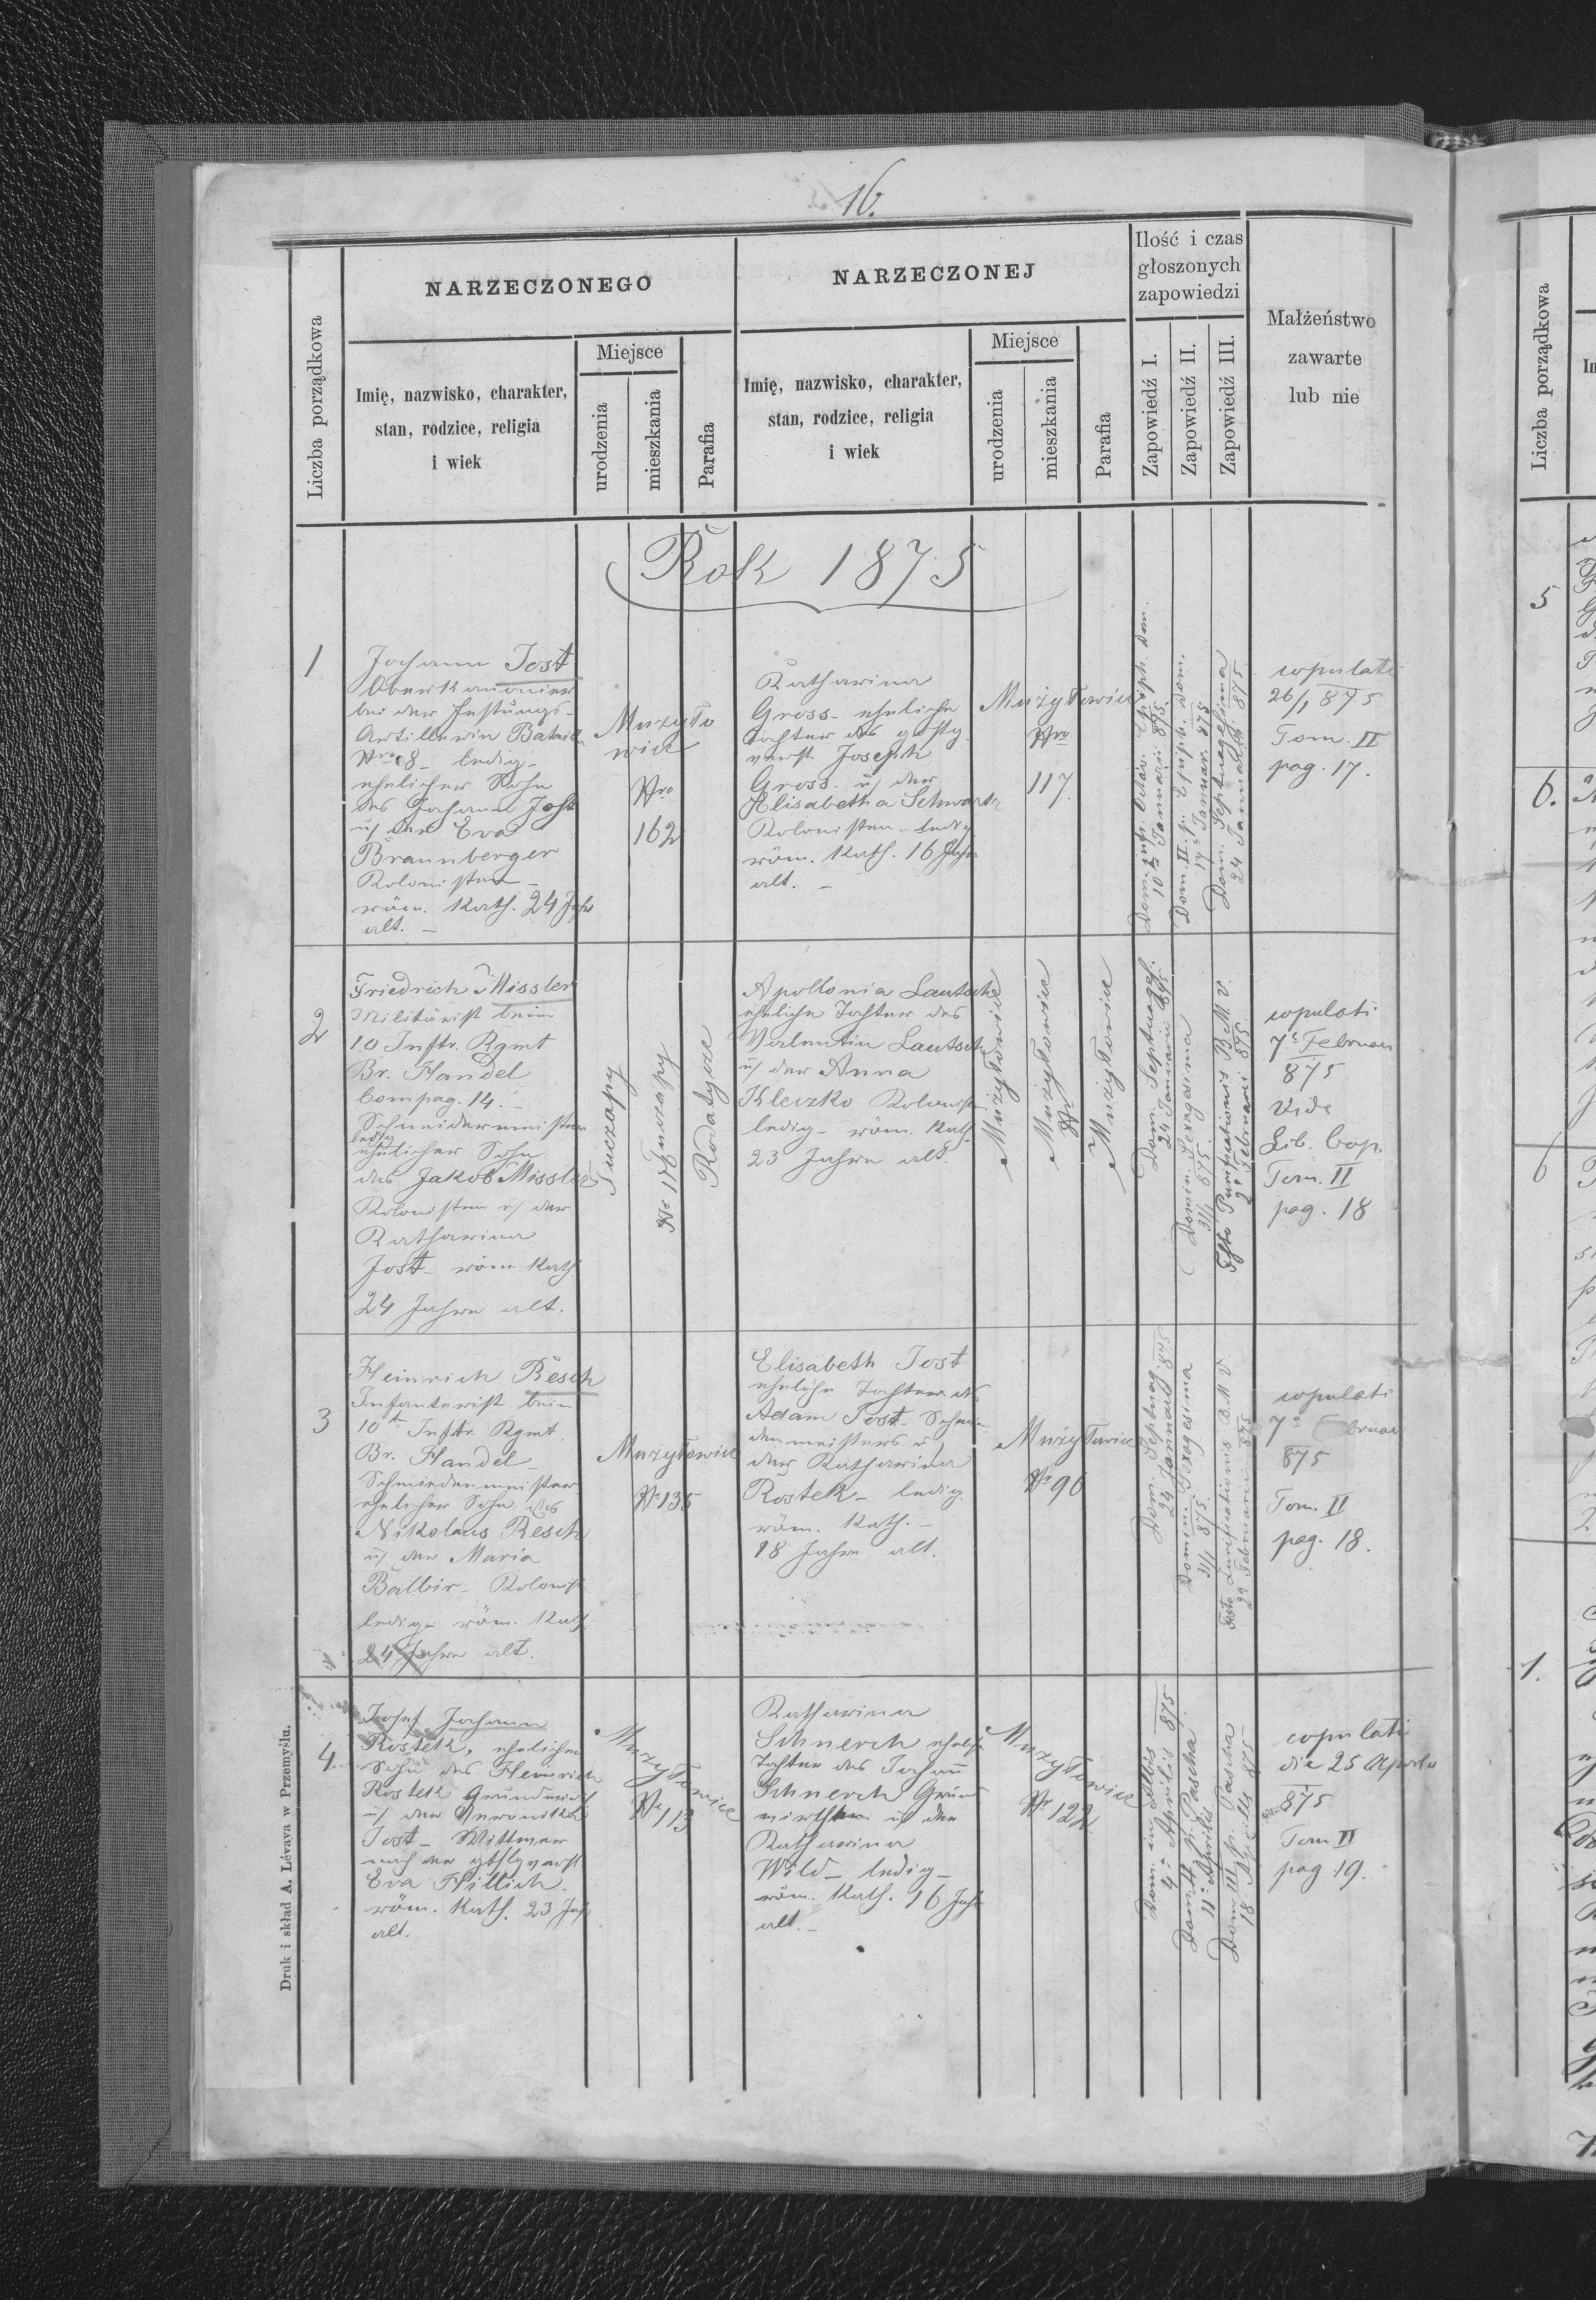 16.
Liczba porządkowa
NARZECZONEGO
Imię, nazwisko, charakter,
stan, rodzice, religia
i wiek
Miejsce
urodzenia
mieszkania
Parafia
NARZECZONEJ
Imię, nazwisko, charakter,
stan, rodzice, religia
i wiek
Miejsce
urodzenia
mieszkania
Parafia
Ilość i czas
głoszonych
zapowiedzi
Zapowiedź I.
Zapowiedź II.
Zapowiedź III.
Małżeństwo
zawarte
lub nie
Rok 1875
1
Johann Jost
Oberkanonier
bei der Festungs-
Artillerie Bataill
Nro 8 - ledig -
ehelicher Sohn
des Johann Jost
u/ der Eva
Braunberger
Kolonisten -
röm. Kath. 24 Jahr
alt. -
Mużyło
wice
Nro
162
Katharina
Gross - eheliche
Tochter des
Joseph
Gross u/ der
Elisabetha Schwartz
Kolonisten - ledig
röm. Kath. 16 Jahr
alt. -
Mużyłowice
Nro
117.
Dom. infr. Octav. Epiph. Dom.
10 Januarii 875.
Dom. II. p. Epiph. Dom.
17 Januar 875
Dom. Septuagesima
24 Januarii 875.
copulati
26/1 875
Tom. II
pag. 17.
2
Friedrich Missler
Militärist beim
10 Inftr. Rgmt
Br. Handel
Compag. 14. -
Schneidermeister
ledig
ehelicher Sohn
des Jakob Missler
Kolonisten u/ der
Katharina
Jost - röm. Kath.
24 Jahre alt.
Tuczapy
Tuczapy
Rodatycze
Apollonia Lautsch
eheliche Tochter des
Valentin Lautsch
u/ der Anna
Kleczko Kolonist
ledig - röm. Kath
23 Jahre alt.
Mużyłowice
Mużyłowice
Nr
Mużyłowice
Dom. Septuages.
24 Januarii 875
Domin. Sexagesima
31/1 875
Festo Purificationis B. M. V.
2a Februarii 875
copulati
7a Februari
875
Vide
Lib. Cop.
Tom. II
pag. 18
3
Heinrich Resch
Infanterist beim
10tn Inftr. Rgmt.
Br. Handel -
Schmiedenmeister
ehelicher Sohn des
Nikolaus Resch
u/ der Maria
Balbir - Kolonist
ledig - röm. Kath.
24 Jahre alt.
Mużyłowice
Nr 135
Elisabeth Jost
eheliche Tochter des
Adam Jost - Schmie-
denmeisters u/
der Katharina
Rostek - ledig.
röm. Kath. -
18 Jahre alt.
Mużyłowice
Nr 90
Dom. Septuag 875
24 Januarii
Domin. Sexagesima
31/1 875.
Festo Purificationis B. M. V.
2a Februarii 875
copulati
7a
875
Tom. II
pag. 18.
4.
Josef Johann
Rostek, ehelicher
Sohn des Heinrich
Rostek Grundwirth
u/ der Veronika
Jost - Wittwer
nach der
Eva Hillich -
röm. Kath. 23 Jahr
alt.
Mużyłowice
Nr 113
Katharina
Schnerch eheliche
Tochter des Johann
Schnerch Grund
wirthen u/ der
Katharina
Wild - ledig -
röm. Kath. 16 Jahr
alt. -
Mużyłowice
Nr 122.
Dom. in Albis
4a Aprilis 875
Dom. II p. Pascha
11 Aprilis
Dom. III p. Pascha
18 Aprilis 875
copulati
die 25 Aprilis
875
Tom II
pag. 19.
Druk i skład A. Lévaya w Przemyślu.
Liczba porządkowa
5
6.
6
1.